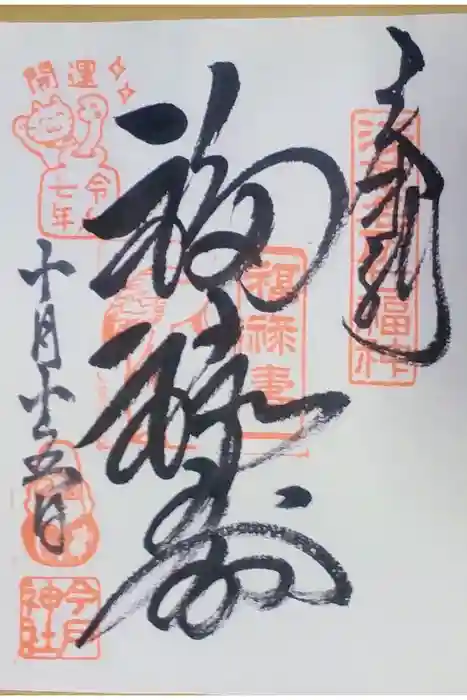 奉拝
浅草名所七福神
福禄寿
福禄壽
開運
令和
七年
十月 五日
今戸
神社